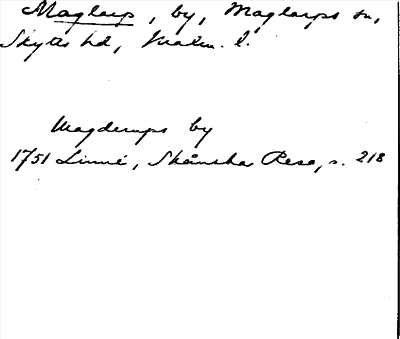 Maglarp, by, Maglarps sn,
Skytts hd, Malm. l.
Magderups by
1751 Linné, Skånska Resa, s. 218